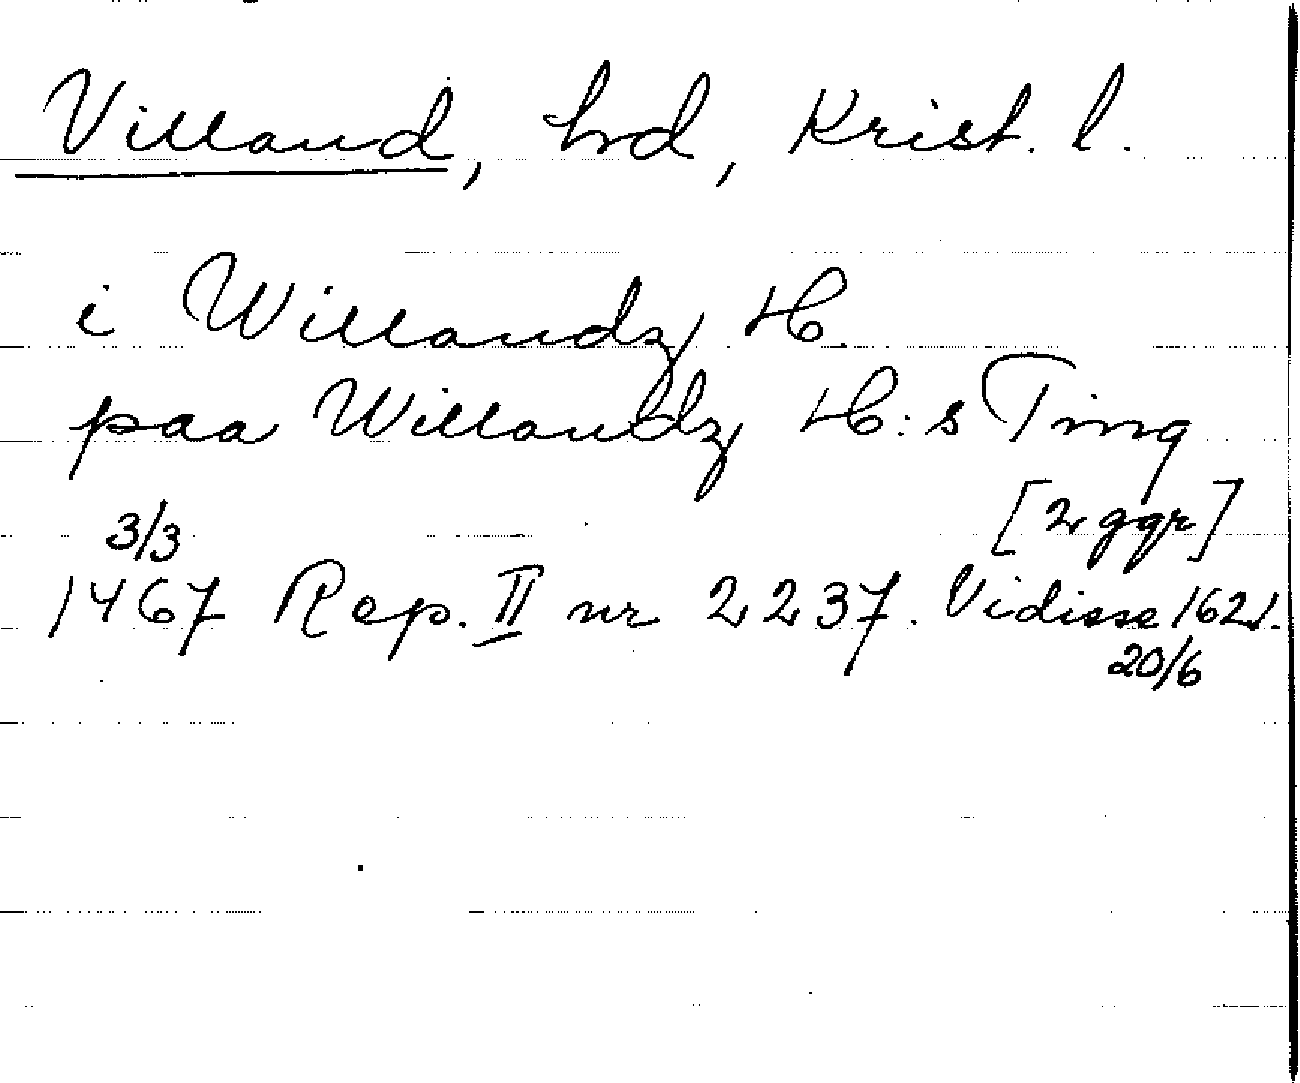 Villand, hd, Krist. l.
i Willandz H.
paa Willandz H:s Ting
[2 ggr]
3/3
1467 Rep. II nr 2237. Vidisse 1621.
20/6